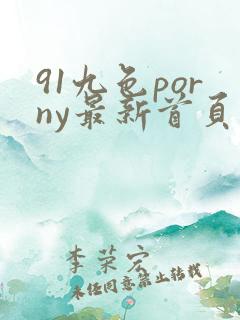 91九色por
ny最新首頁
李荣宏
未经同意禁止转载